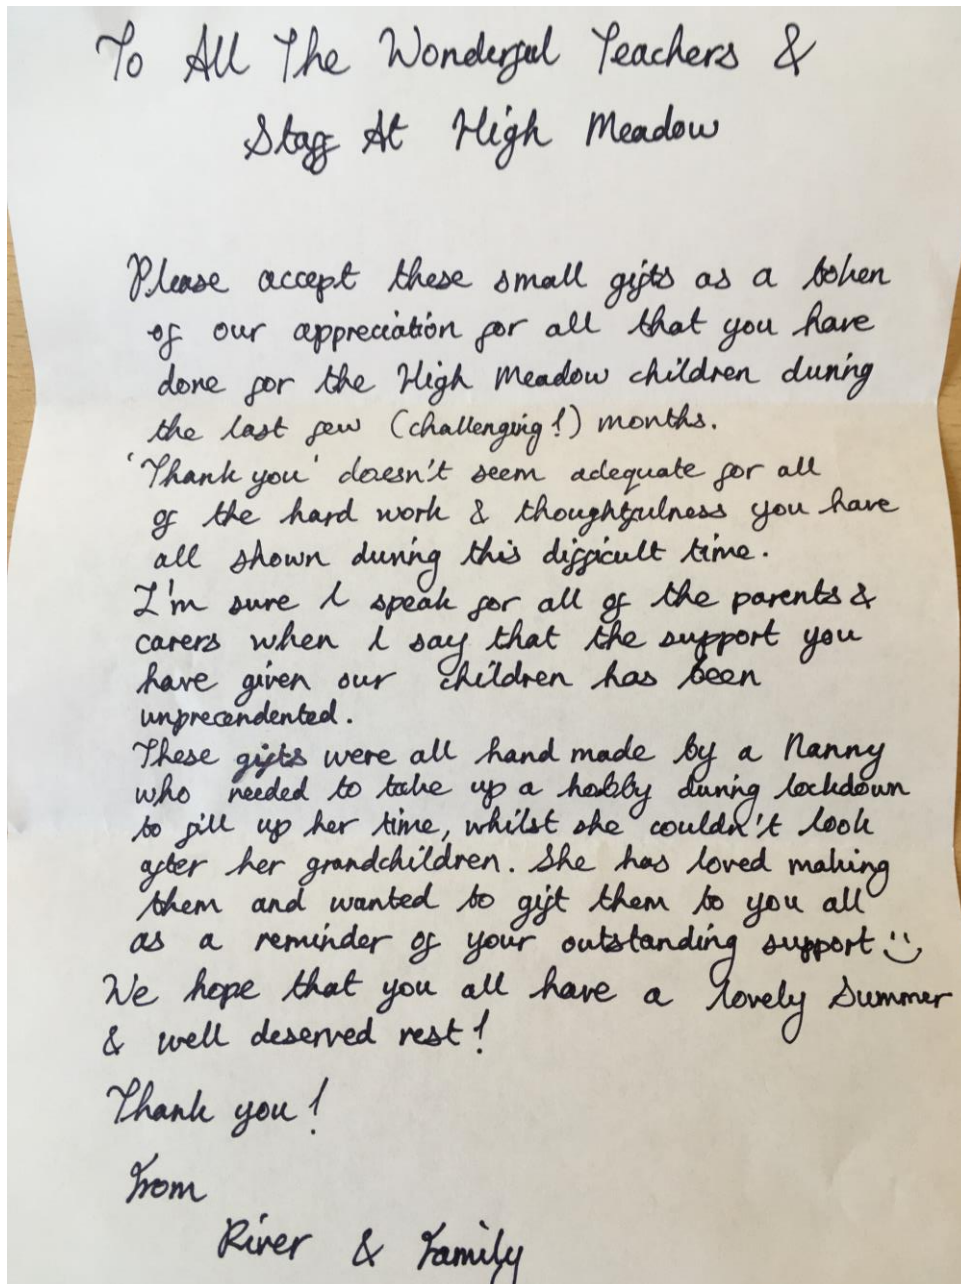 To All The Wonderful Teachers &
Staff At High Meadow
Please accept these small gifts as a token
of our appreciation for all that you have
done for the High Meadow children during
the last few (challenging!) months.
'Thank you' doesn't seem adequate for all
of the hard work & thoughtfulness you have
all shown during this difficult time.
I'm sure I speak for all of the parents &
carers when I say that the support you
have given our children has been
unprecendented.
These gifts were all hand made by a Nanny
who needed to take up a hobby during lockdown
to fill up her time, whilst she couldn't look
after her grandchildren. She has loved making
them and wanted to gift them to you all
as a reminder of your outstanding support :)
We hope that you all have a lovely Summer
& well deserved rest!
Thank you!
From
River & Family